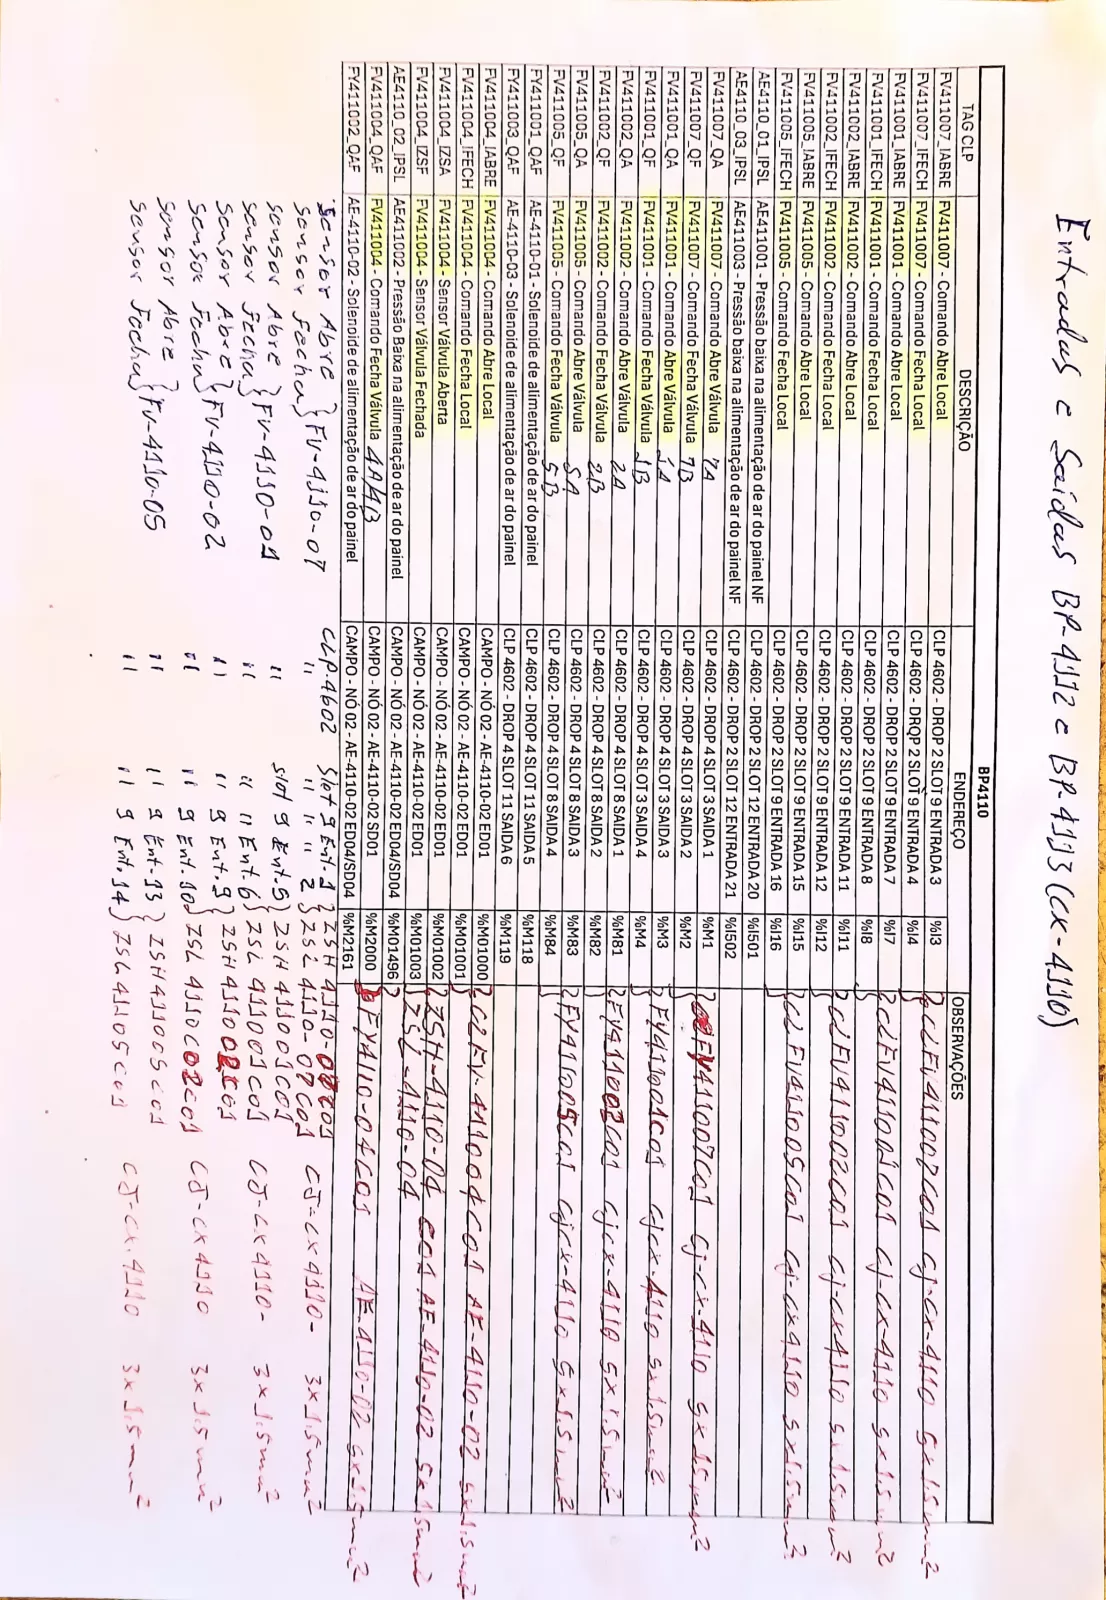 Entradas e Saídas BP-4112 e BP-4113 (CX-4110)
BP4110
TAG CLP DESCRIÇÃO ENDEREÇO OBSERVAÇÕES
FV411007_IABRE FV411007 - Comando Abre Local CLP 4602 - DROP 2 SLOT 9 ENTRADA 3 %I3
FV411007_IFECH FV411007 - Comando Fecha Local CLP 4602 - DROP 2 SLOT 9 ENTRADA 4 %I4 } CLFV411007C01 Cj-cx-4110 5x1.5mm²
FV411001_IABRE FV411001 - Comando Abre Local CLP 4602 - DROP 2 SLOT 9 ENTRADA 7 %I7
FV411001_IFECH FV411001 - Comando Fecha Local CLP 4602 - DROP 2 SLOT 9 ENTRADA 8 %I8 } CLFV411001C01 Cj-cx-4110 5x1.5mm²
FV411002_IABRE FV411002 - Comando Abre Local CLP 4602 - DROP 2 SLOT 9 ENTRADA 11 %I11
FV411002_IFECH FV411002 - Comando Fecha Local CLP 4602 - DROP 2 SLOT 9 ENTRADA 12 %I12 } CLFV411002C01 Cj-cx4110 5x1.5mm²
FV411005_IABRE FV411005 - Comando Abre Local CLP 4602 - DROP 2 SLOT 9 ENTRADA 15 %I15
FV411005_IFECH FV411005 - Comando Fecha Local CLP 4602 - DROP 2 SLOT 9 ENTRADA 16 %I16 } CLFV411005C01 Cj-cx4110 5x1.5mm²
AE4110_01_IPSL AE411001 - Pressão baixa na alimentação de ar do painel NF CLP 4602 - DROP 2 SLOT 12 ENTRADA 20 %I501
AE4110_03_IPSL AE411003 - Pressão baixa na alimentação de ar do painel NF CLP 4602 - DROP 2 SLOT 12 ENTRADA 21 %I502
FV411007_QA FV411007 - Comando Abre Válvula 7A CLP 4602 - DROP 4 SLOT 3 SAIDA 1 %M1
FV411007_QF FV411007 - Comando Fecha Válvula 7B CLP 4602 - DROP 4 SLOT 3 SAIDA 2 %M2 } FY411007C01 Cj-cx-4110 5x1.5mm²
FV411001_QA FV411001 - Comando Abre Válvula 1A CLP 4602 - DROP 4 SLOT 3 SAIDA 3 %M3
FV411001_QF FV411001 - Comando Fecha Válvula 1B CLP 4602 - DROP 4 SLOT 3 SAIDA 4 %M4 } FY411001C01 Cjcx-4110 5x1.5mm²
FV411002_QA FV411002 - Comando Abre Válvula 2A CLP 4602 - DROP 4 SLOT 8 SAIDA 1 %M81
FV411002_QF FV411002 - Comando Fecha Válvula 2B CLP 4602 - DROP 4 SLOT 8 SAIDA 2 %M82 } FY411002C01 Cjcx-4110 5x1.5mm²
FV411005_QA FV411005 - Comando Abre Válvula 5A CLP 4602 - DROP 4 SLOT 8 SAIDA 3 %M83
FV411005_QF FV411005 - Comando Fecha Válvula 5B CLP 4602 - DROP 4 SLOT 8 SAIDA 4 %M84 } FY411005C01 Cjcx-4110 5x1.5mm²
FY411001_QAF AE-4110-01 - Solenoide de alimentação de ar do painel CLP 4602 - DROP 4 SLOT 11 SAIDA 5 %M118
FY411003_QAF AE-4110-03 - Solenoide de alimentação de ar do painel CLP 4602 - DROP 4 SLOT 11 SAIDA 6 %M119
FV411004_IABRE FV411004 - Comando Abre Local CAMPO - NÓ 02 - AE-4110-02 ED01 %M01000
FV411004_IFECH FV411004 - Comando Fecha Local CAMPO - NÓ 02 - AE-4110-02 ED01 %M01001 } CLFV-411004C01 AE-4110-02 5x1.5mm²
FV411004_IZSA FV411004 - Sensor Válvula Aberta CAMPO - NÓ 02 - AE-4110-02 ED01 %M01002 } ZSH-4110-04 C01 AE-4110-02 5x1.5mm²
FV411004_IZSF FV411004 - Sensor Válvula Fechada CAMPO - NÓ 02 - AE-4110-02 ED01 %M01003 } ZSL-4110-04
AE4110_02_IPSL AE411002 - Pressão Baixa na alimentação de ar do painel CAMPO - NÓ 02 - AE-4110-02 ED04/SD04 %M01496
FV411004_QAF FV411004 - Comando Fecha Válvula 4A/4B CAMPO - NÓ 02 - AE-4110-02 SD01 %M2000 } FY4110-04C01 AE-4110-02 5x1.5mm²
FY411002_QAF AE-4110-02 - Solenoide de alimentação de ar do painel CAMPO - NÓ 02 - AE-4110-02 ED04/SD04 %M2161
Sensor Abre CLP.4602 Slot 9 Ent.1 } ZSH 4110-07C01
Sensor Fecha } FV-4110-07 " " " " 2 } ZSL 4110-07C01 CJ-cx4110- 3x1.5mm²
Sensor Abre " Slot 9 Ent.5 } ZSH 411001C01
Sensor Fecha } FV-4110-01 " " " Ent.6 } ZSL 411001C01 CJ-cx4110- 3x1.5mm²
Sensor Abre " " 9 Ent.9 } ZSH411002C01
Sensor Fecha } FV-4110-02 " " 9 Ent.10 } ZSL 4110C02C01 CJ-cx4110 3x1.5mm²
Sensor Abre " " 9 Ent-13 } ZSH411005C01
Sensor Fecha } FV-4110-05 " " 9 Ent.14 } ZSL41105C01 CJ-cx.4110 3x1.5mm²